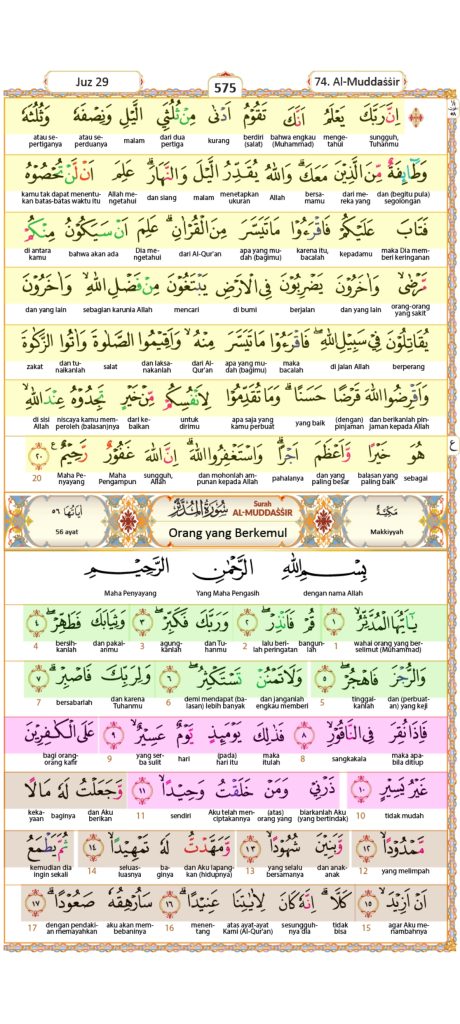 Juz 29
575
74. Al-Muddaṡṡir
اِنَّ رَبَّكَ يَعْلَمُ اَنَّكَ تَقُوْمُ اَدْنٰى مِنْ ثُلُثَيِ الَّيْلِ وَنِصْفَهٗ وَثُلُثَهٗ
sungguh, Tuhanmu mengetahui bahwa engkau (Muhammad) berdiri (salat) kurang dari dua pertiga malam atau seperduanya atau sepertiganya
وَطَاۤىِٕفَةٌ مِّنَ الَّذِيْنَ مَعَكَۗ وَاللّٰهُ يُقَدِّرُ الَّيْلَ وَالنَّهَارَۗ عَلِمَ اَنْ لَّنْ تُحْصُوْهُ
dan (begitu pula) segolongan dari mereka yang bersamamu Allah menetapkan ukuran malam dan siang Allah mengetahui kamu tak dapat menentukan batas-batas waktu itu
فَتَابَ عَلَيْكُمْ فَاقْرَءُوْا مَا تَيَسَّرَ مِنَ الْقُرْاٰنِۗ عَلِمَ اَنْ سَيَكُوْنُ مِنْكُمْ
maka Dia memberi keringanan kepadamu karena itu, bacalah apa yang mudah (bagimu) dari Al-Qur'an Dia mengetahui bahwa akan ada di antara kamu
مَّرْضٰىۙ وَاٰخَرُوْنَ يَضْرِبُوْنَ فِى الْاَرْضِ يَبْتَغُوْنَ مِنْ فَضْلِ اللّٰهِ ۙ وَاٰخَرُوْنَ
orang-orang yang sakit dan yang lain berjalan di bumi mencari sebagian karunia Allah dan yang lain
يُقَاتِلُوْنَ فِيْ سَبِيْلِ اللّٰهِ ۖ فَاقْرَءُوْا مَا تَيَسَّرَ مِنْهُۙ وَاَقِيْمُوا الصَّلٰوةَ وَاٰتُوا الزَّكٰوةَ
berperang di jalan Allah maka bacalah apa yang mudah (bagimu) dari Al-Qur'an dan laksanakanlah salat dan tunaikanlah zakat
وَاَقْرِضُوا اللّٰهَ قَرْضًا حَسَنًاۗ وَمَا تُقَدِّمُوْا لِاَنْفُسِكُمْ مِّنْ خَيْرٍ تَجِدُوْهُ عِنْدَ اللّٰهِ
dan berikanlah pinjaman kepada Allah (dengan) pinjaman yang baik apa saja yang kamu perbuat untuk dirimu dari kebaikan niscaya kamu memperoleh (balasan)nya di sisi Allah
هُوَ خَيْرًا وَّاَعْظَمَ اَجْرًاۗ وَاسْتَغْفِرُوا اللّٰهَ ۗ اِنَّ اللّٰهَ غَفُوْرٌ رَّحِيْمٌ ٢٠
sebagai balasan yang paling baik dan yang paling besar pahalanya dan mohonlah ampunan kepada Allah sungguh, Allah Maha Pengampun Maha Penyayang 20
ع
مَكِّيَّة
Makkiyyah
سُوْرَةُ الْمُدَّثِّرِ
Surah
AL-MUDDAṠṠIR
Orang yang Berkemul
اٰيَاتُهَا ٥٦
56 ayat
بِسْمِ اللّٰهِ الرَّحْمٰنِ الرَّحِيْمِ
dengan nama Allah Yang Maha Pengasih Maha Penyayang
يٰٓاَيُّهَا الْمُدَّثِّرُۙ ١ قُمْ فَاَنْذِرْۖ ٢ وَرَبَّكَ فَكَبِّرْۖ ٣ وَثِيَابَكَ فَطَهِّرْۖ ٤
wahai orang yang berselimut (Muhammad) 1 bangunlah lalu beri peringatan 2 dan Tuhanmu agungkanlah 3 dan pakaianmu bersihkanlah 4
وَالرُّجْزَ فَاهْجُرْۖ ٥ وَلَا تَمْنُنْ تَسْتَكْثِرُۖ ٦ وَلِرَبِّكَ فَاصْبِرْۗ ٧
dan (perbuatan) yang keji tinggalkanlah 5 dan janganlah engkau memberi demi mendapat (balasan) lebih banyak 6 dan karena Tuhanmu bersabarlah 7
فَاِذَا نُقِرَ فِى النَّاقُوْرِۙ ٨ فَذٰلِكَ يَوْمَىِٕذٍ يَّوْمٌ عَسِيْرٌۙ ٩ عَلَى الْكٰفِرِيْنَ
maka apabila ditiup sangkakala 8 maka itulah (pada) hari itu hari yang serba sulit 9 bagi orang-orang kafir
غَيْرُ يَسِيْرٍ ١٠ ذَرْنِيْ وَمَنْ خَلَقْتُ وَحِيْدًاۙ ١١ وَّجَعَلْتُ لَهٗ مَالًا
tidak mudah 10 biarkanlah Aku (yang bertindak) (atas) orang yang Aku telah menciptakannya sendiri 11 dan Aku berikan baginya kekayaan
مَّمْدُوْدًاۙ ١٢ وَّبَنِيْنَ شُهُوْدًاۙ ١٣ وَّمَهَّدْتُّ لَهٗ تَمْهِيْدًاۙ ١٤ ثُمَّ يَطْمَعُ
yang melimpah 12 dan anak-anak yang selalu bersamanya 13 dan Aku lapangkan (hidupnya) baginya seluas-luasnya 14 kemudian dia ingin sekali
اَنْ اَزِيْدَۙ ١٥ كَلَّاۗ اِنَّهٗ كَانَ لِاٰيٰتِنَا عَنِيْدًاۗ ١٦ سَاُرْهِقُهٗ صَعُوْدًاۗ ١٧
agar Aku menambahnya 15 tidak bisa sesungguhnya dia atas ayat-ayat Kami (Al-Qur'an) menentang 16 aku akan membebaninya dengan pendakian memayahkan 17